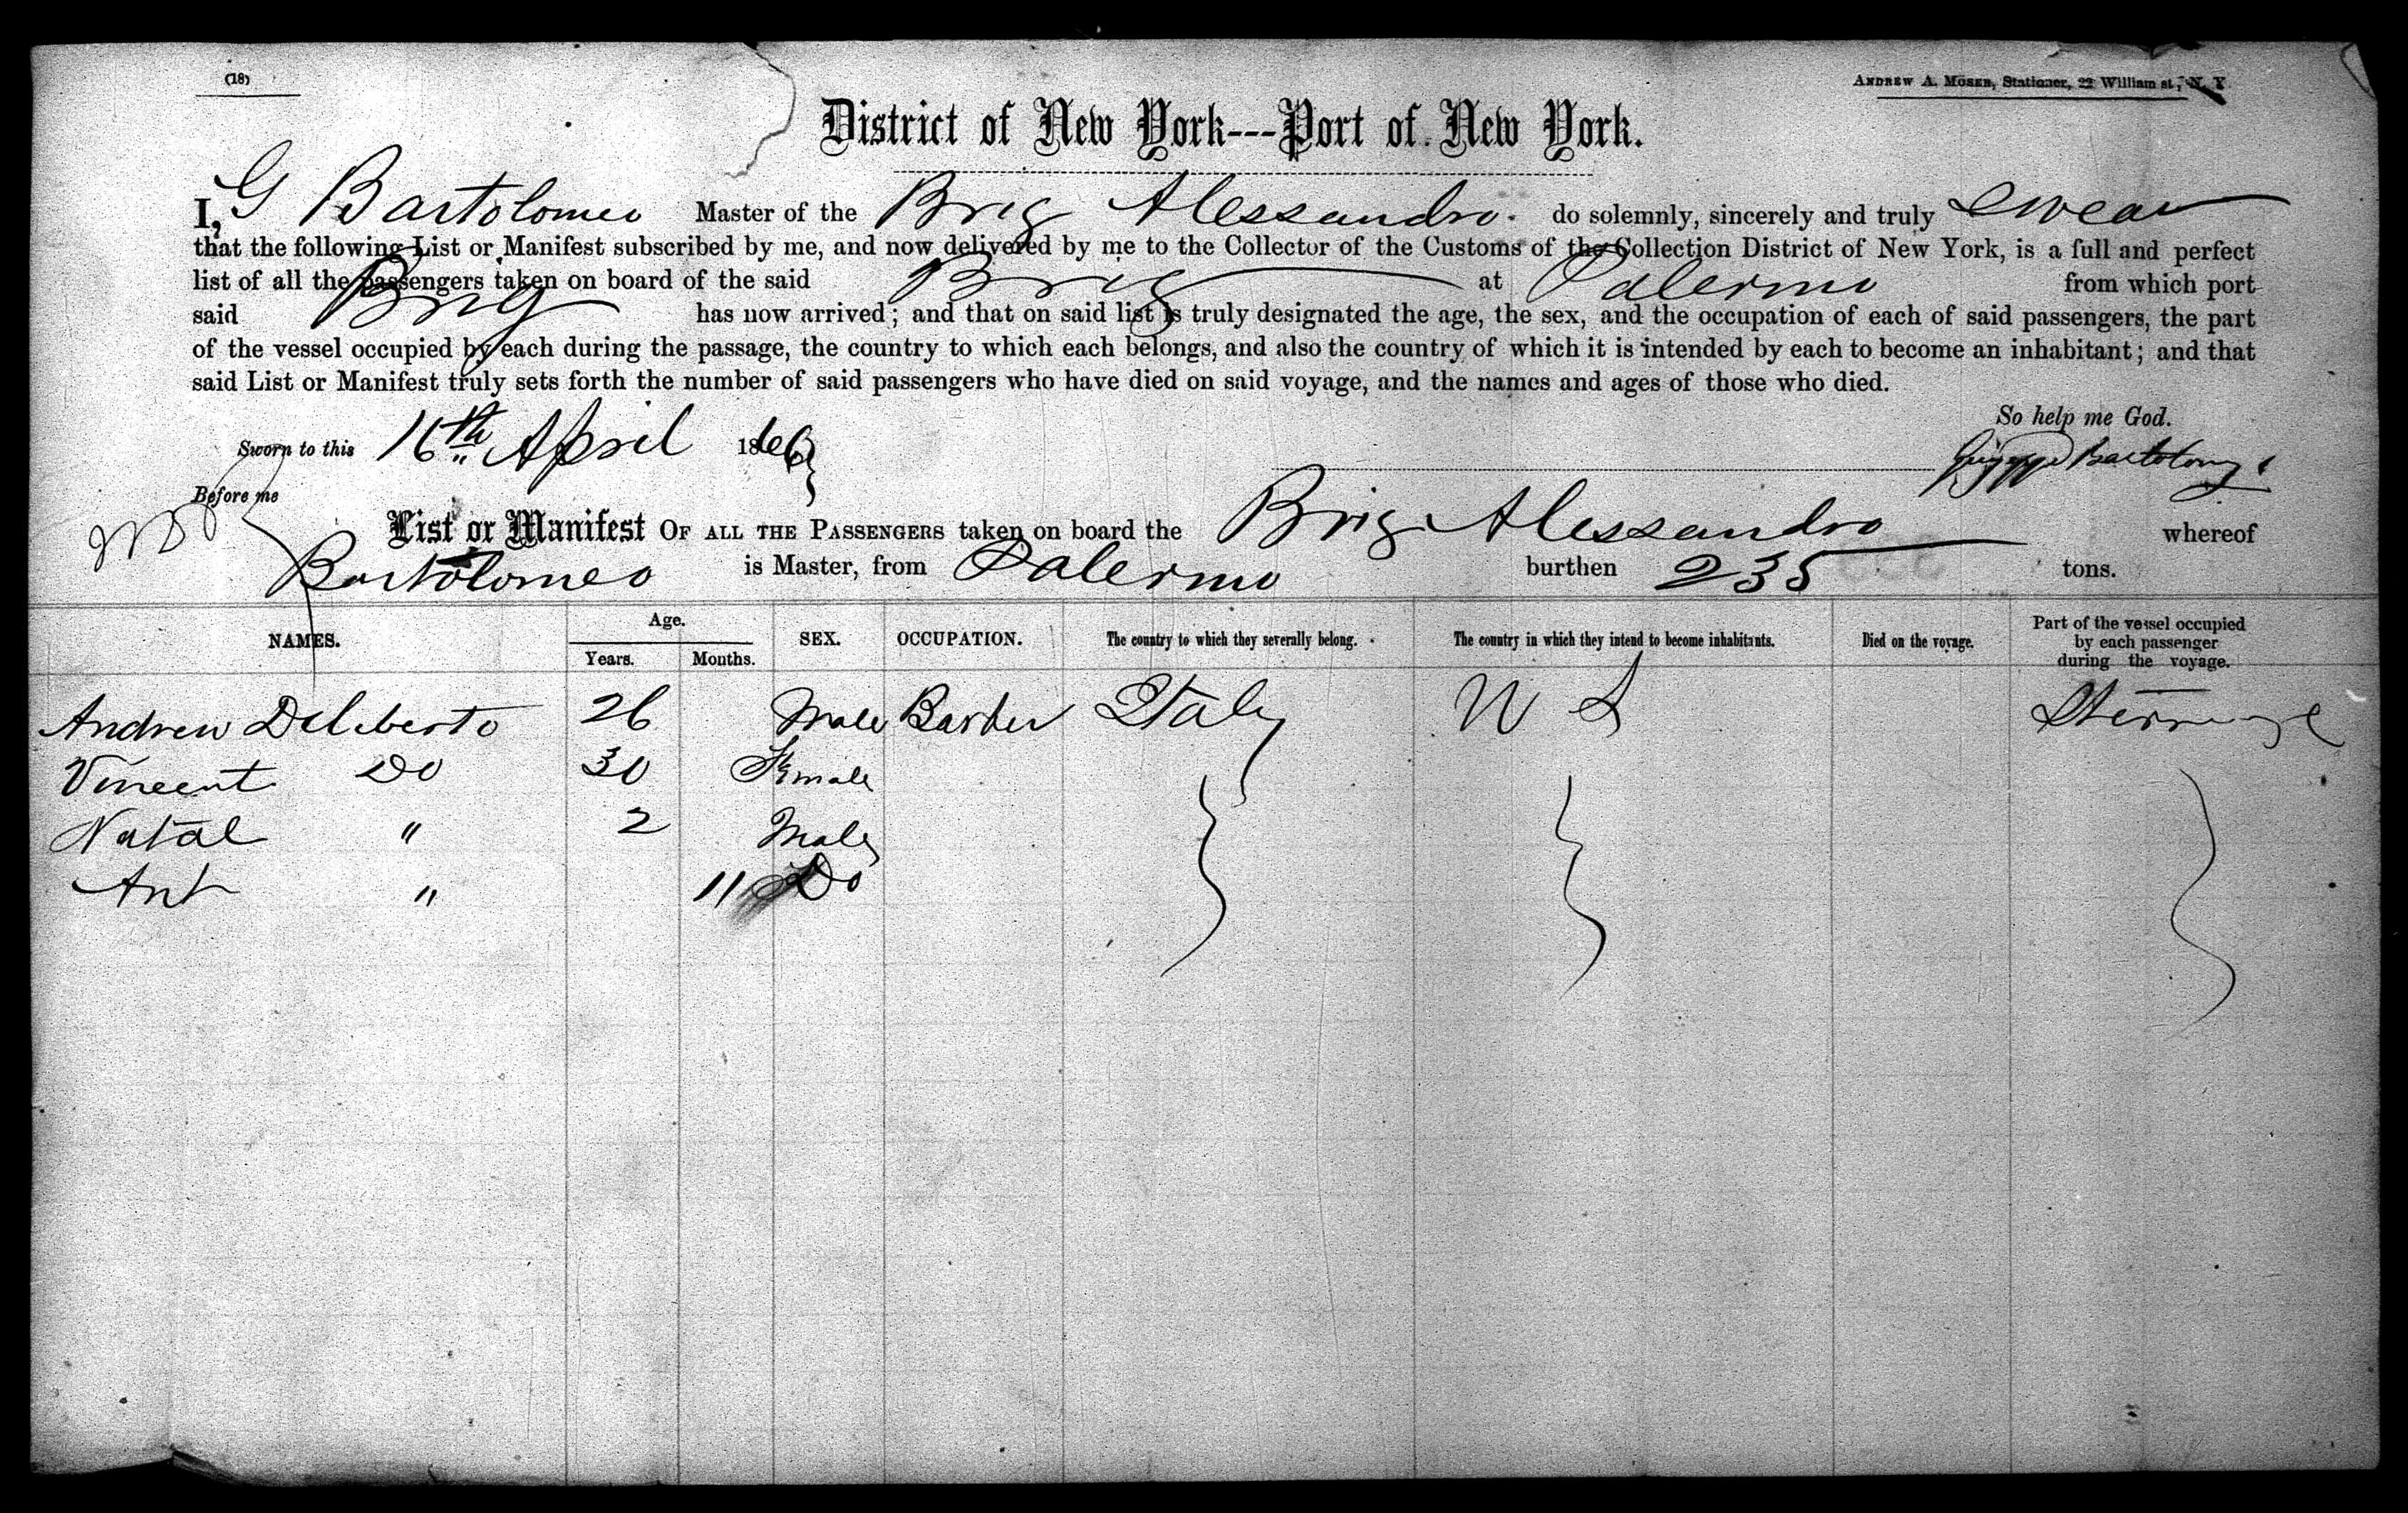 (18)
ANDREW A. MOSER, Stationer, 22 William st., N. Y.
District of New York---Port of New York.
I, G Bartolomeo Master of the Brig Alessandro. do solemnly, sincerely and truly swear
that the following List or Manifest subscribed by me, and now delivered by me to the Collector of the Customs of the Collection District of New York, is a full and perfect
list of all the passengers taken on board of the said Brig at Palermo from which port
said Brig has now arrived; and that on said list is truly designated the age, the sex, and the occupation of each of said passengers, the part
of the vessel occupied by each during the passage, the country to which each belongs, and also the country of which it is intended by each to become an inhabitant; and that
said List or Manifest truly sets forth the number of said passengers who have died on said voyage, and the names and ages of those who died.
So help me God.
Sworn to this 16th April 1866
Before me
List or Manifest OF ALL THE PASSENGERS taken on board the Brig Alessandro whereof
Bartolomeo is Master, from Palermo burthen 235 tons.
NAMES. Age. Years. Months. SEX. OCCUPATION. The country to which they severally belong. The country in which they intend to become inhabitants. Died on the voyage. Part of the vessel occupied by each passenger during the voyage.
Andrew Deliberto 26 Male Barber Italy U S Steerage
Vincent Do 30 Female
Natal " 2 Male
Ant " 11 Do